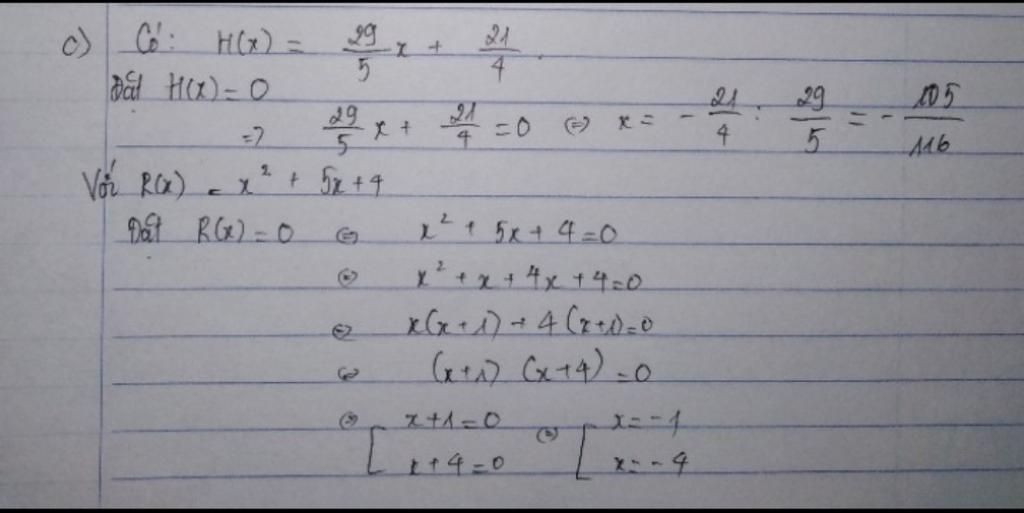 c) Có: H(x) = 29/5 x + 21/4.
Đặt H(x) = 0
=> 29/5 x + 21/4 = 0 <=> x = - 21/4 : 29/5 = - 105/116
Với R(x) = x² + 5x + 4
Đặt R(x) = 0 <=> x² + 5x + 4 = 0
<=> x² + x + 4x + 4 = 0
<=> x(x+1) + 4(x+1) = 0
<=> (x+1) (x+4) = 0
<=> [ x+1 = 0 <=> [ x = -1
x+4 = 0 x = -4